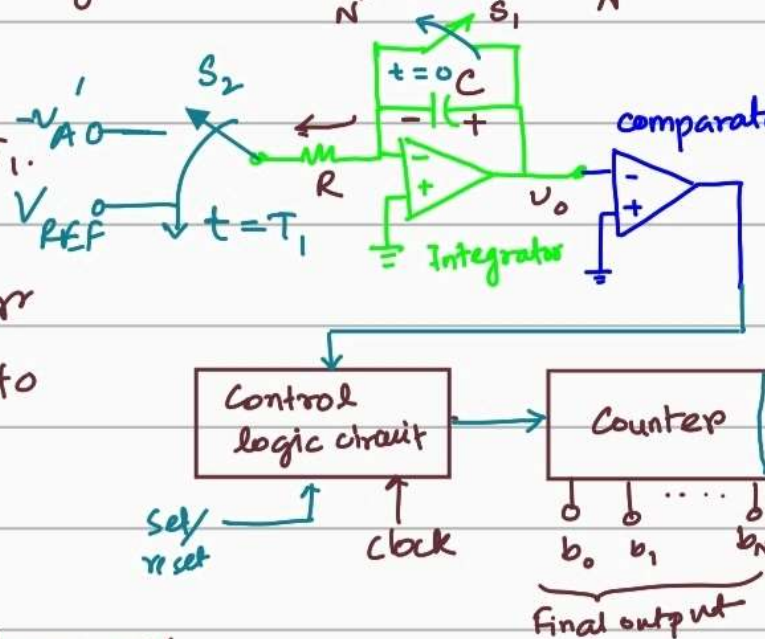 N
S₁
t = 0
C
S₂
- +
-V'A
V REF
t = T₁
R
-
+
Integrator
υ₀
comparat
-
+
1.
rr
to
Control
logic circuit
Counter
....
set/
reset
clock
b₀ b₁ bN
Final output